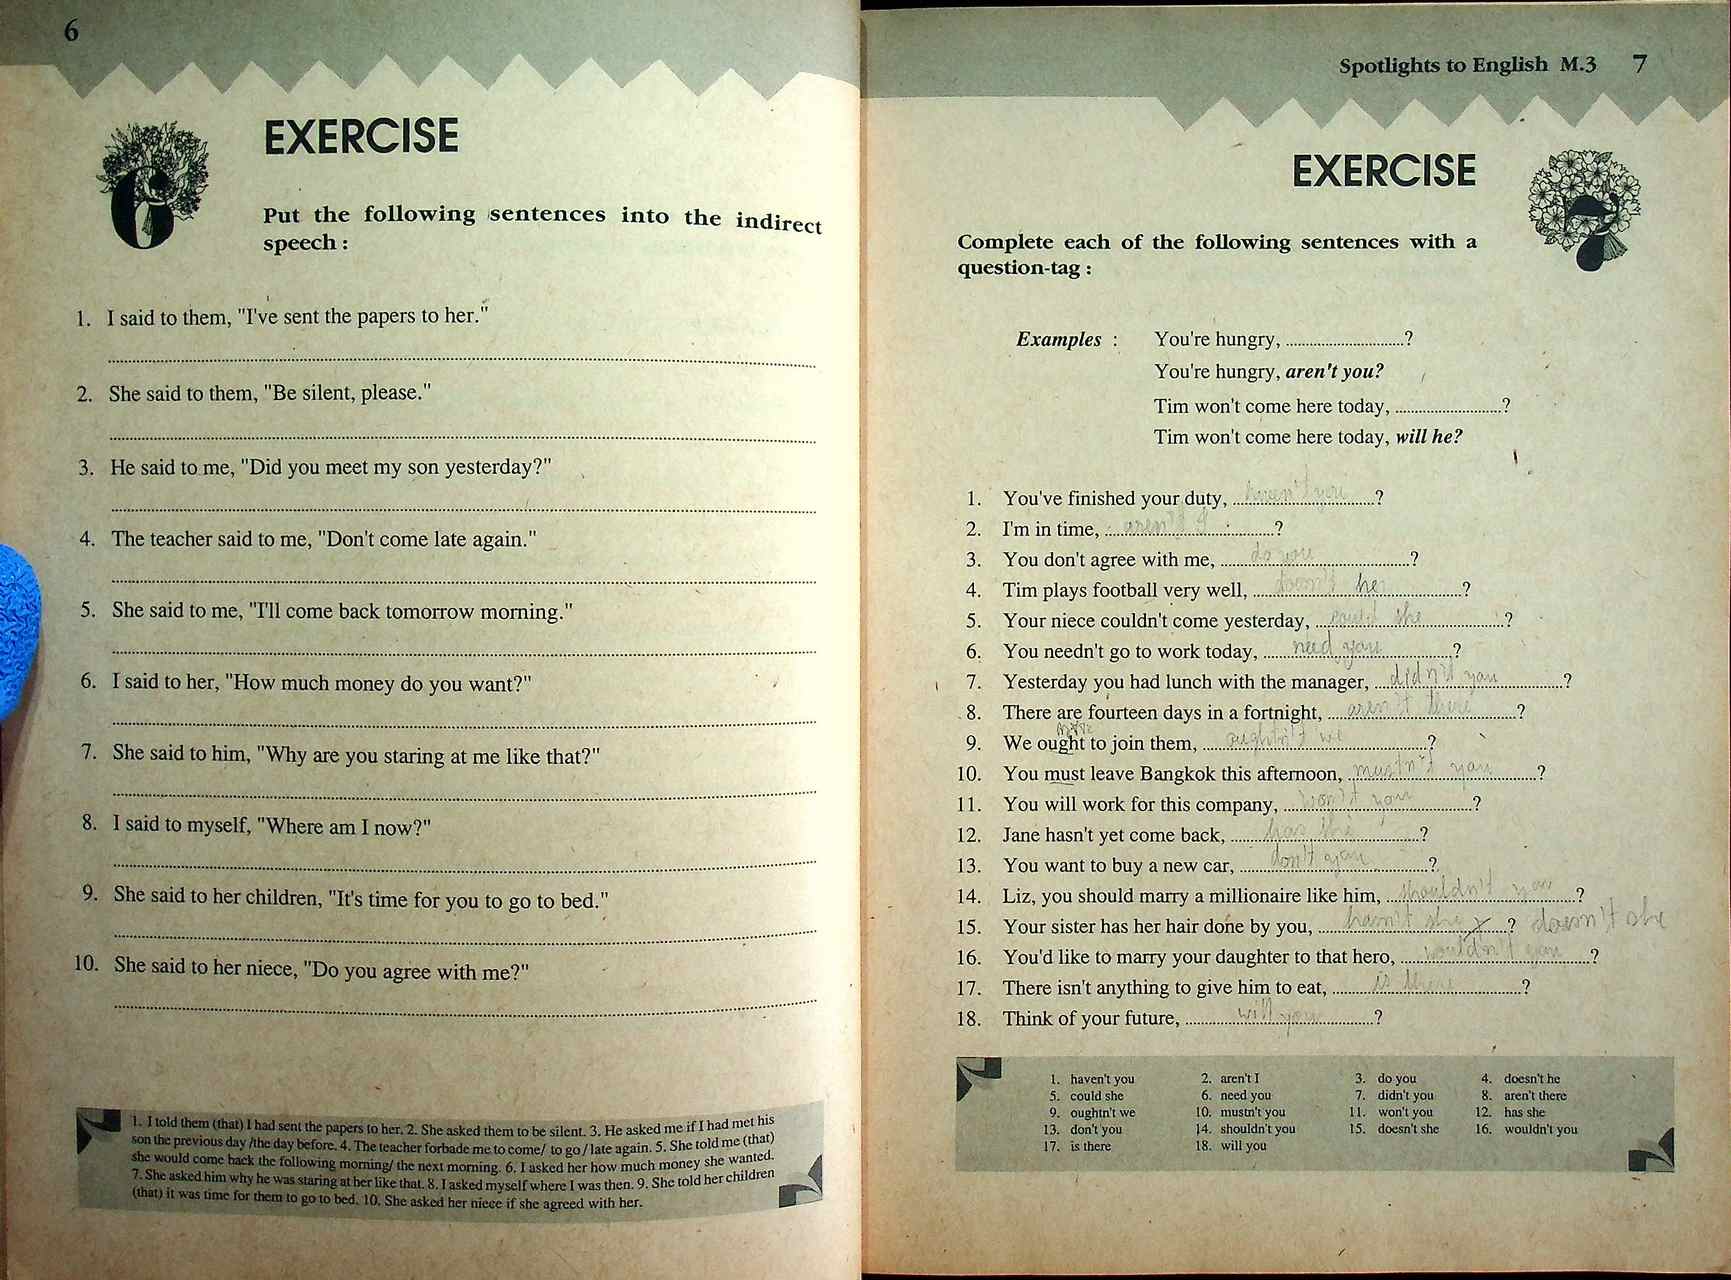 6
EXERCISE
6
Put the following sentences into the indirect
speech :
1. I said to them, "I've sent the papers to her."
2. She said to them, "Be silent, please."
3. He said to me, "Did you meet my son yesterday?"
4. The teacher said to me, "Don't come late again."
5. She said to me, "I'll come back tomorrow morning."
6. I said to her, "How much money do you want?"
7. She said to him, "Why are you staring at me like that?"
8. I said to myself, "Where am I now?"
9. She said to her children, "It's time for you to go to bed."
10. She said to her niece, "Do you agree with me?"
1. I told them (that) I had sent the papers to her. 2. She asked them to be silent. 3. He asked me if I had met his
son the previous day /the day before. 4. The teacher forbade me to come/ to go / late again. 5. She told me (that)
she would come back the following morning/ the next morning. 6. I asked her how much money she wanted.
7. She asked him why he was staring at her like that. 8. I asked myself where I was then. 9. She told her children
(that) it was time for them to go to bed. 10. She asked her niece if she agreed with her.
Spotlights to English M.3 7
EXERCISE
7
Complete each of the following sentences with a
question-tag :
Examples : You're hungry, ..............................?
You're hungry, aren't you?
Tim won't come here today, ...........................?
Tim won't come here today, will he?
1. You've finished your duty, haven't you ?
2. I'm in time, aren't I ?
3. You don't agree with me, do you ?
4. Tim plays football very well, doesn't he ?
5. Your niece couldn't come yesterday, could she ?
6. You needn't go to work today, need you ?
7. Yesterday you had lunch with the manager, didn't you ?
8. There are fourteen days in a fortnight, aren't there ?
9. We ought to join them, oughtn't we ?
10. You must leave Bangkok this afternoon, mustn't you ?
11. You will work for this company, won't you ?
12. Jane hasn't yet come back, has she ?
13. You want to buy a new car, don't you ?
14. Liz, you should marry a millionaire like him, shouldn't you ?
15. Your sister has her hair done by you, hasn't she ? doesn't she
16. You'd like to marry your daughter to that hero, wouldn't you ?
17. There isn't anything to give him to eat, is there ?
18. Think of your future, will you ?
1. haven't you 2. aren't I 3. do you 4. doesn't he
5. could she 6. need you 7. didn't you 8. aren't there
9. oughtn't we 10. mustn't you 11. won't you 12. has she
13. don't you 14. shouldn't you 15. doesn't she 16. wouldn't you
17. is there 18. will you